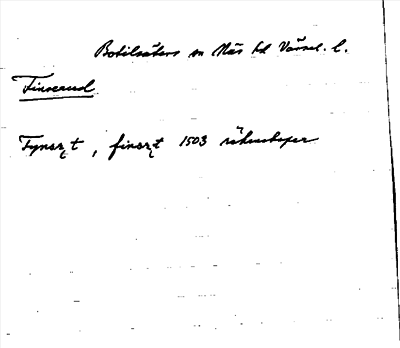 Botilsäters sn Näs hd Värml. l.
Finserud
Fynert, finert 1503 räkenskaper